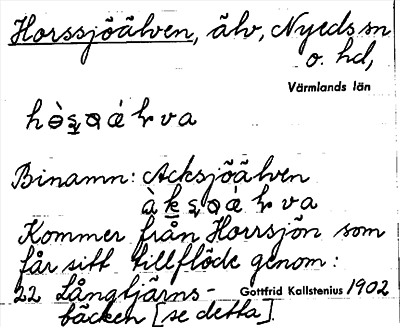 Horssjöälven, älv, Nyeds sn
o. hd,
Värmlands län
Binamn: Acksjöälven
Kommer från Horrsjön som
får sitt tillflöde genom:
22 Långtjärns- Gottfrid Kallstenius 1902
bäcken [se detta].